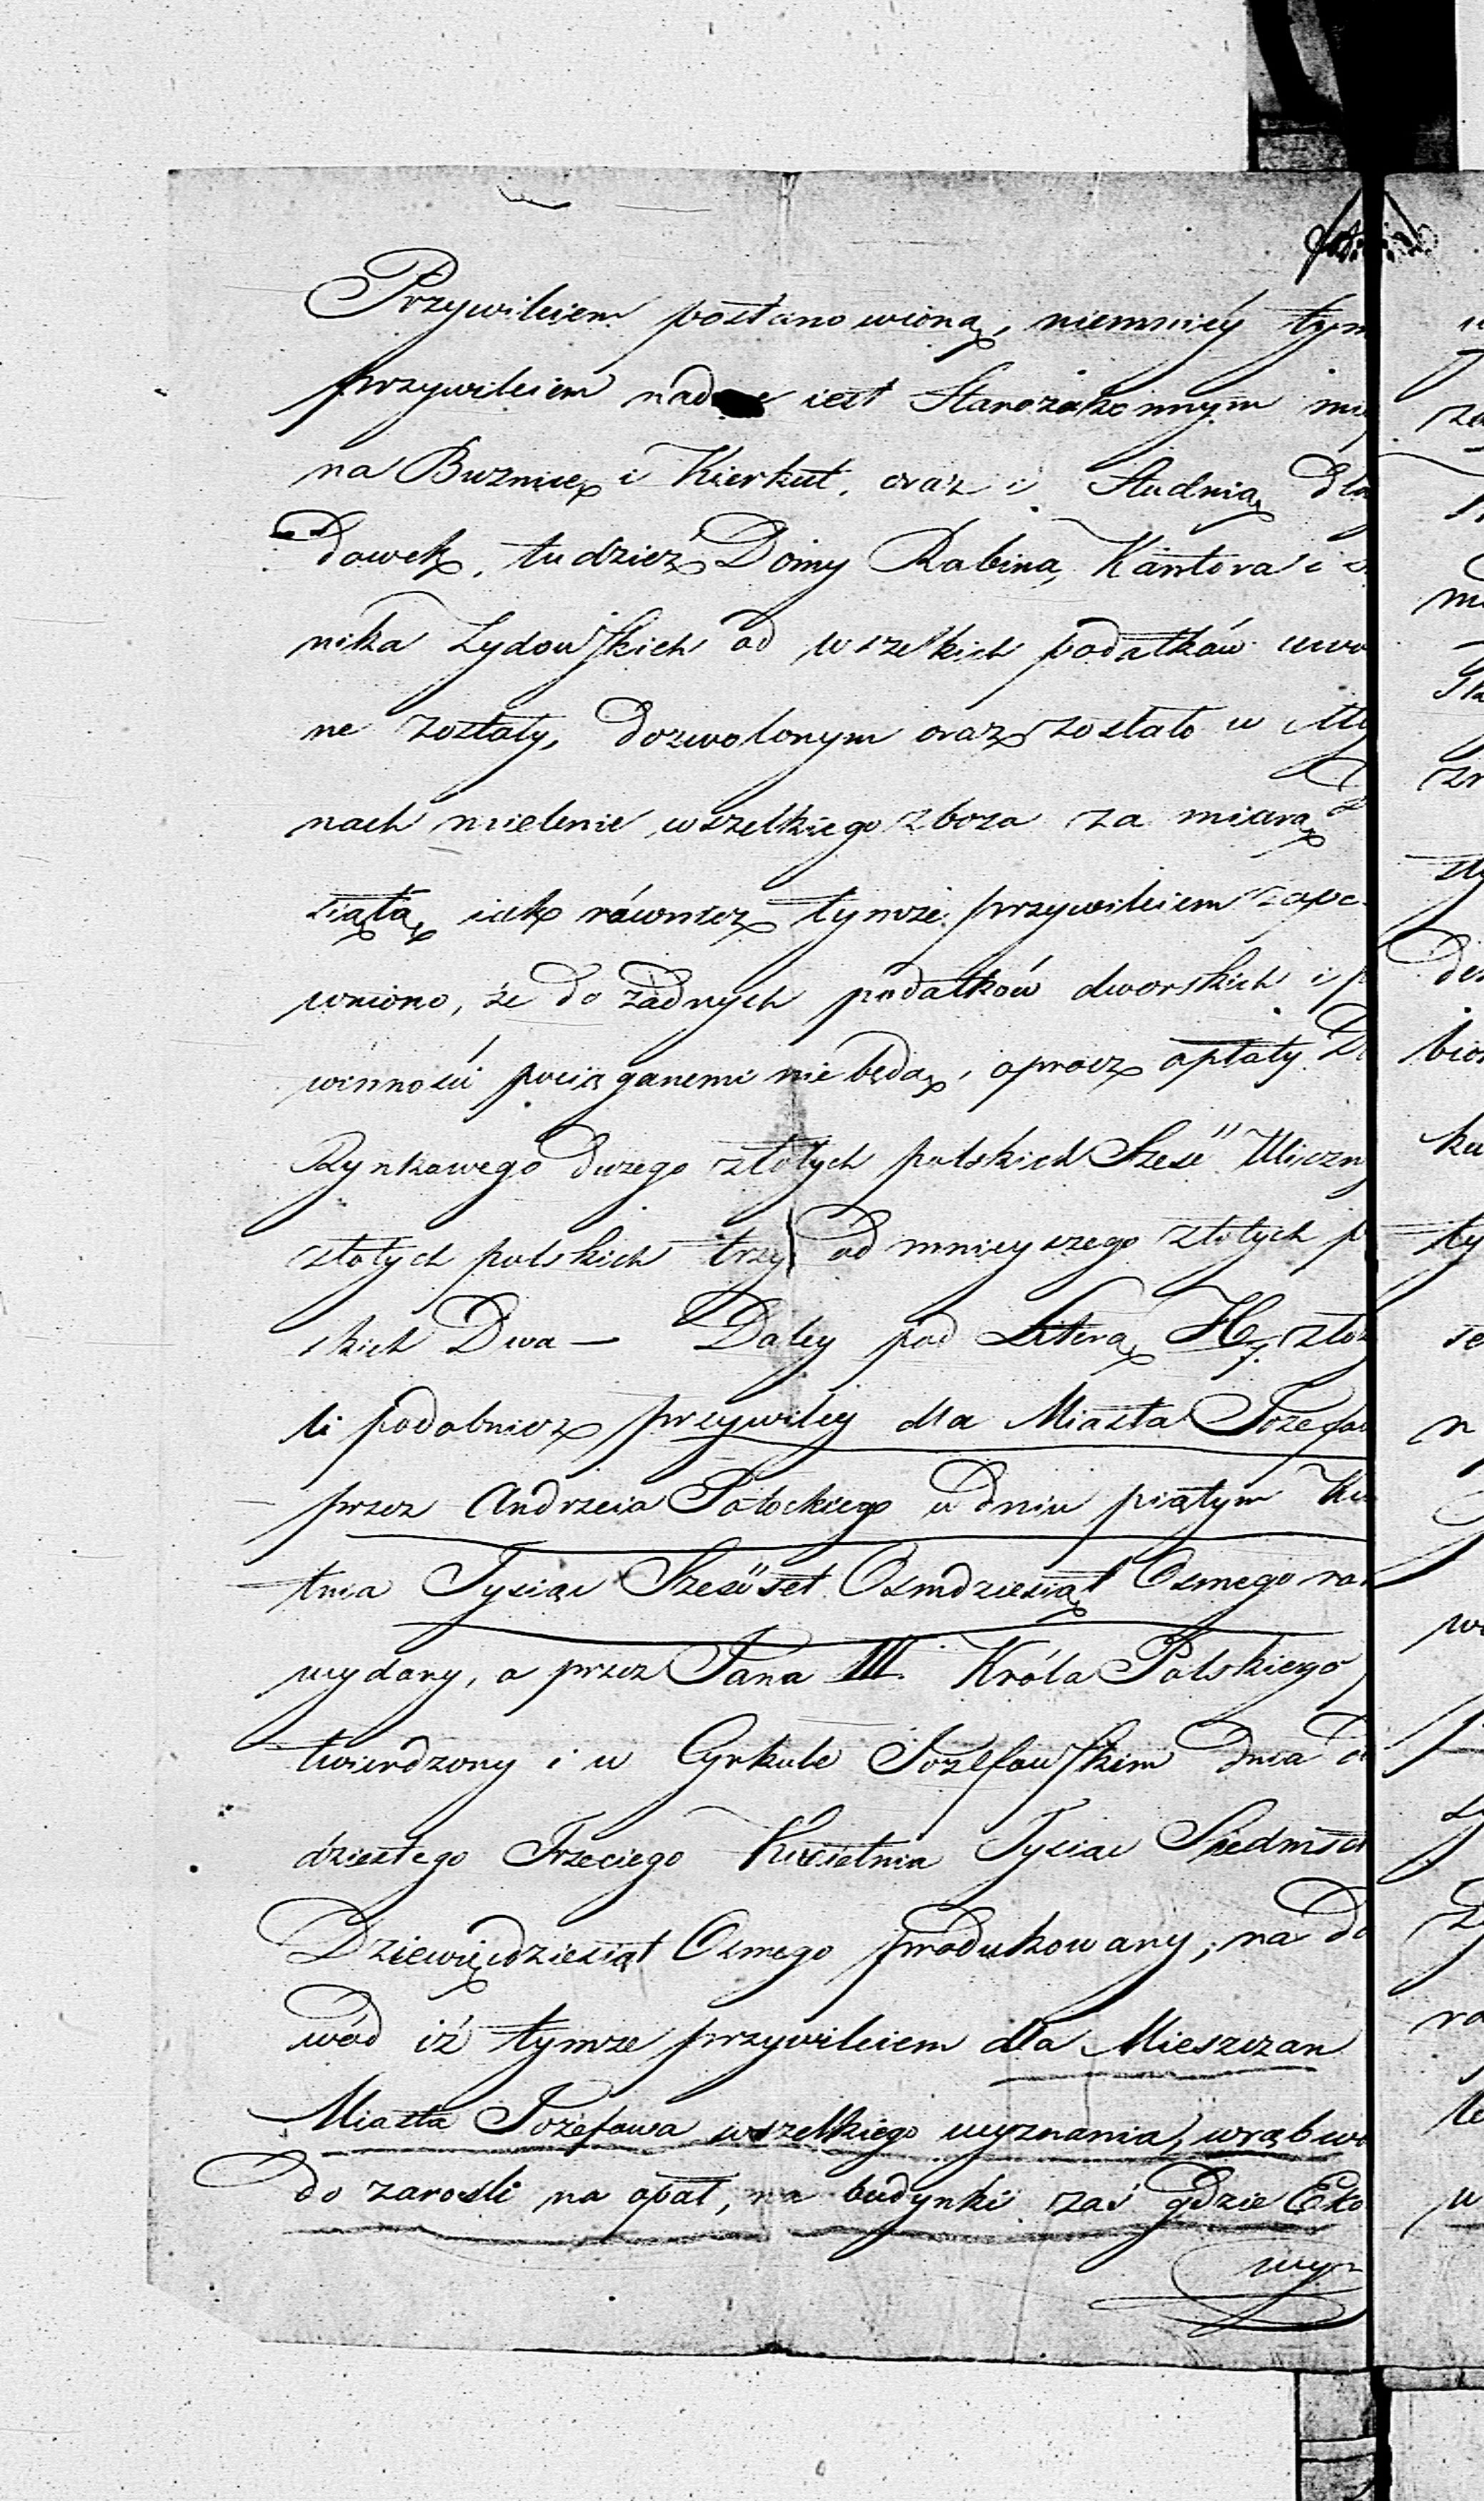 Przywileiem postanowioną, niemniéy tym
przywileiem nad iest Starozakonnym
na Buznicę i Kierkut, oraz i Studnią dla
dowek, tudzież Domy Rabina, Kantora i
nika Zydowskich od wszelkich podatków uwo
ne zostały, dozwolonym oraz zostało w Mły
nach mielenie wszelkiego zboza za miarą
siątą, iak równiez tymże przywileiem zape
wniono, że do żadnych podatków dworskich i p
winności pociąganemi nie będą, oprocz opłaty
Rynkowego duzego złotych polskich Sześć Uliczn
złotych polskich trzy od mnieyszego złotych p
skich Dwa — Daley pod Literą H, złoż
li podobniez przywiley dla Miasta Jozefow
przez Andrzeia Potockiego w dniu piątym Kw
tnia Tysiąc Sześćset Osmdziesiąt Osmego ro
wydany, a przez Jana III. Króla Polskiego
twierdzony i w Cyrkule Jozefowskim dnia d
dziestego Trzeciego Kwietnia Tysiąc Siedmset
Dziewięćdziesiąt Osmego produkowany, na do
wód iż tymze przywileiem dla Mieszczan
Miasta Jozefowa wszelkiego wyznania, wrąb wo
do zarośli na opał, na budynki zaś gdzie Eko
wyz